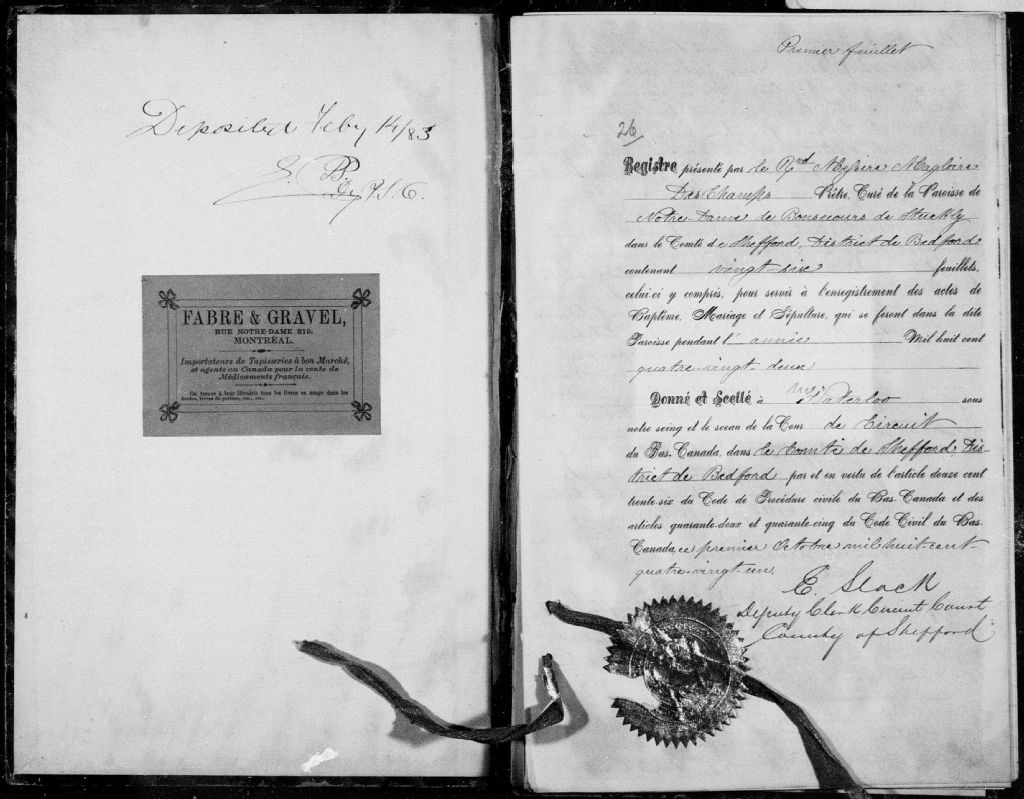 Deposited Feby 14/83
P. S. C.
FABRE & GRAVEL,
RUE NOTRE-DAME 219,
MONTRÉAL.
Importateurs de Tapisseries à bon Marché,
et agents au Canada pour la vente de
Médicaments français.
On trouve à leur librairie tous les livres en usage dans les
écoles, livres de prières, etc., etc.
Premier feuillet
26
Registre présenté par le Rvrd Messire Magloire
DesChamps Prêtre, Curé de la Paroisse de
Notre-Dame de Bonsecours de Stuckly
dans le Comté de Shefford, District de Bedford
contenant vingt-six feuillets,
celui-ci y compris, pour servir à l'enregistrement des actes de
Baptême, Mariage et Sépulture, qui se feront dans la dite
Paroisse pendant l'année Mil huit cent
quatre-vingt-deux
Donné et Scellé à Waterloo sous
notre seing et le sceau de la Cour de Circuit
du Bas-Canada, dans le Comté de Shefford, Dis-
trict de Bedford par et en vertu de l'article douze cent
trente-six du Code de Procédure civile du Bas-Canada et des
articles quarante-deux et quarante-cinq du Code Civil du Bas-
Canada, ce premier Octobre mil huit-cent-
quatre-vingt-un.
E. Slack
Deputy Clerk Circuit Court
County of Shefford